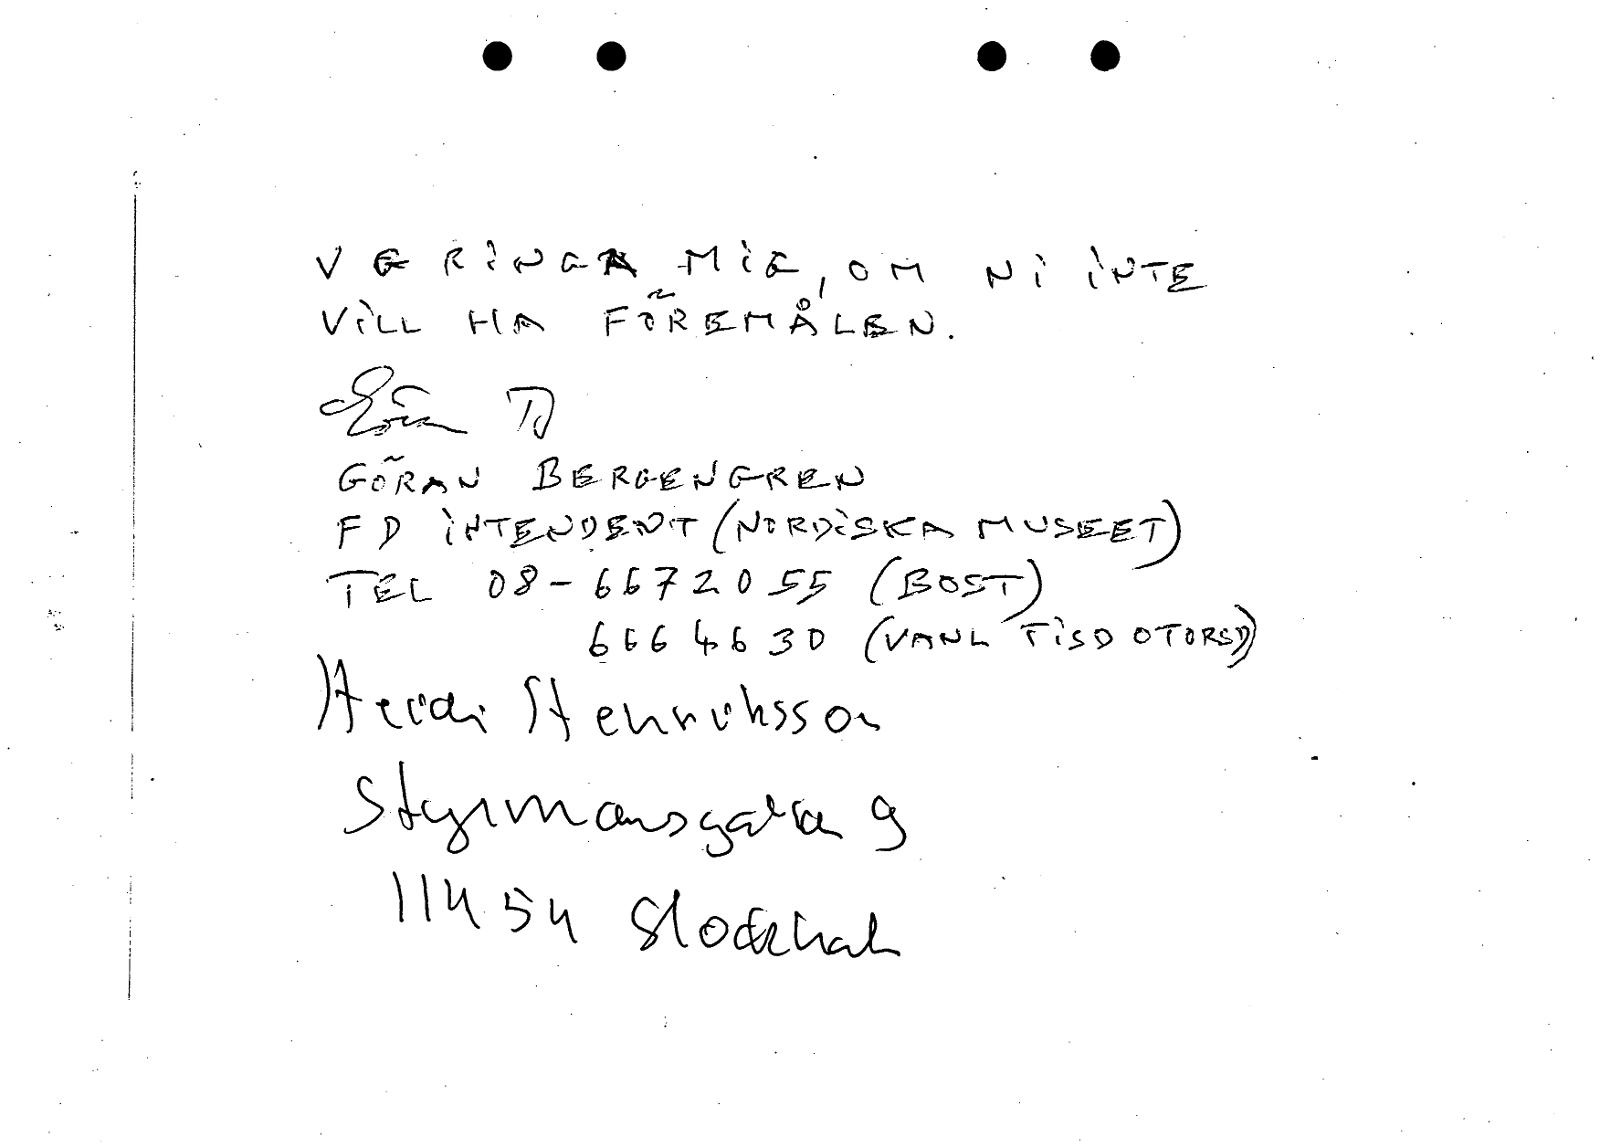 VG RINGA MIG, OM NI INTE
VILL HA FÖREMÅLEN.
Göran B
GÖRAN BERGENGREN
FD INTENDENT (NORDISKA MUSEET)
TEL 08-6672055 (BOST)
6664630 (VANL TISD OTORSD)
Heidi Henriksson
Styrmansgatan 9
114 54 Stockholm